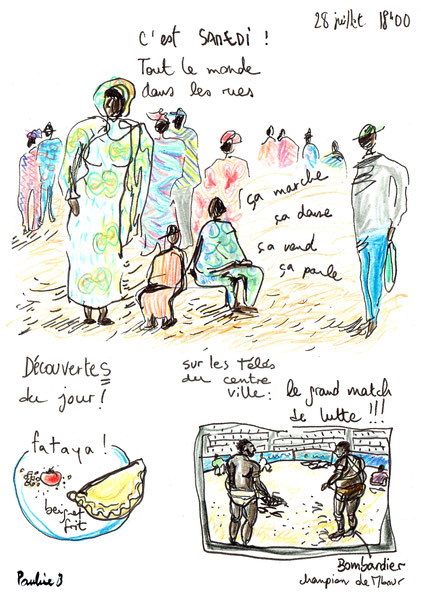 28 juillet 18h00
C'est SAMEDI !
Tout le monde
dans les rues
ça marche
ça danse
ça vend
ça parle
Découvertes
du jour !
fataya !
beignet
frit
sur les télés
du centre
ville :
le grand match
de lutte !!!
Bombardier
champion de Mbour
Pauline B